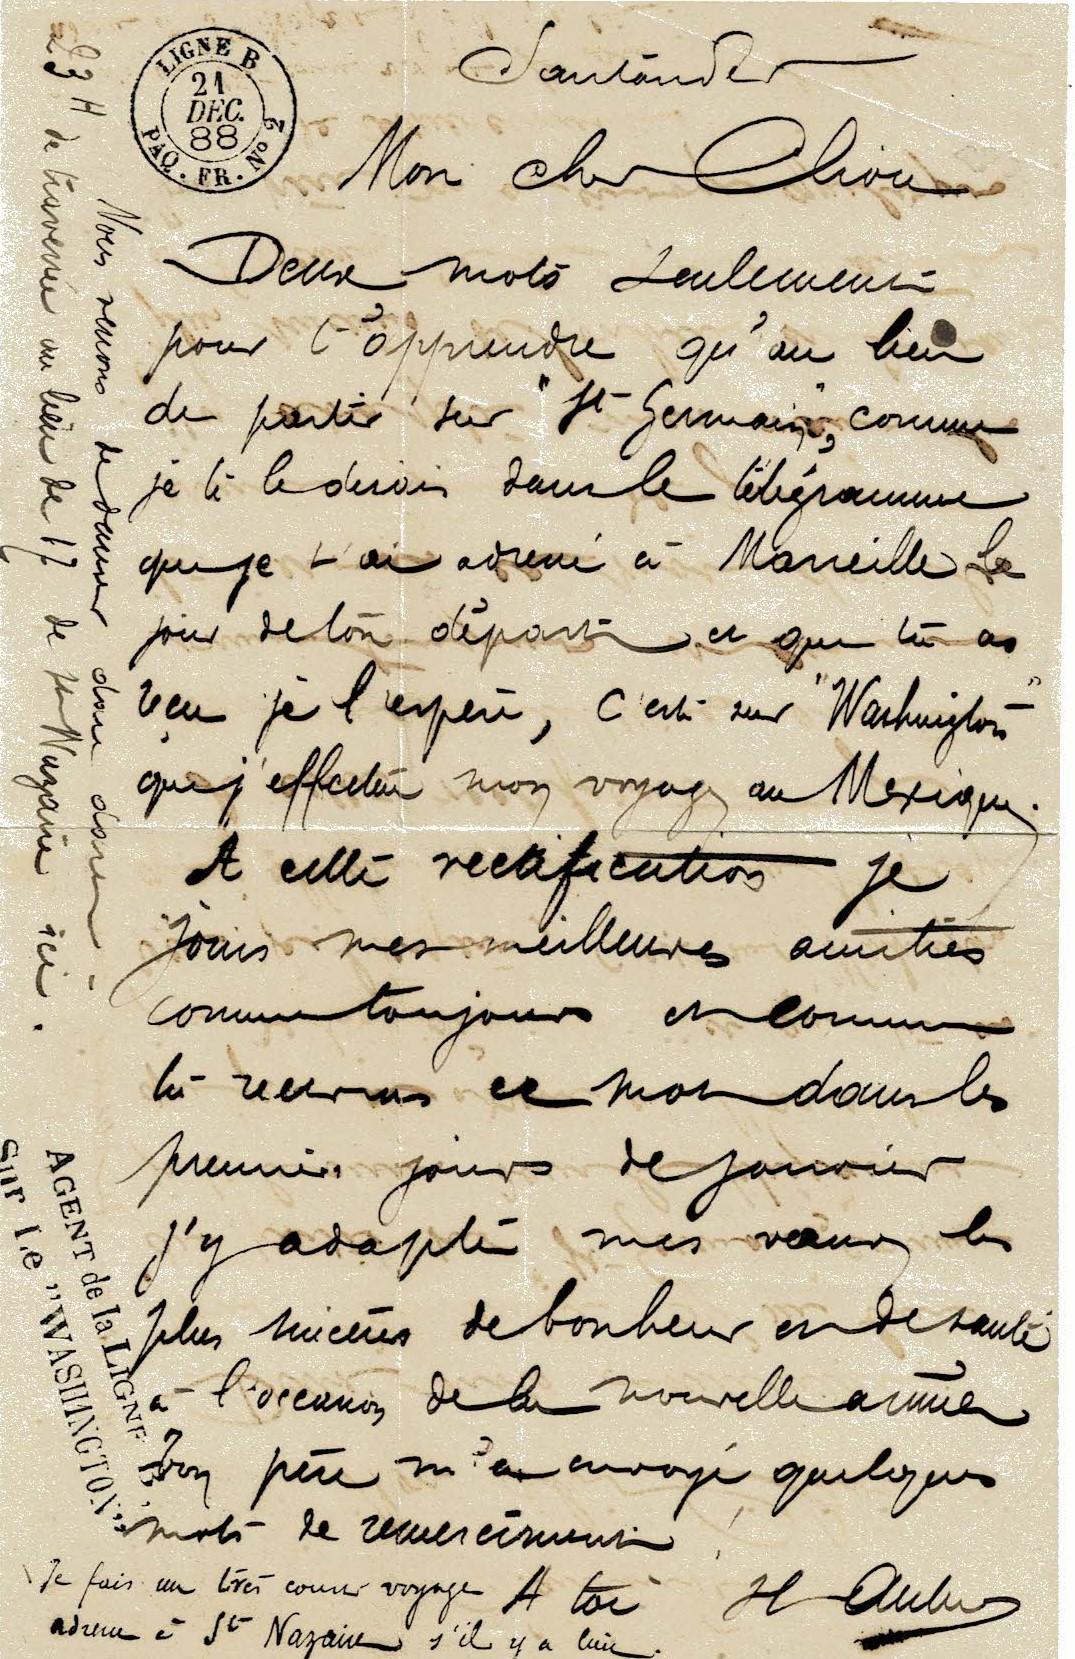 LIGNE B
21
DEC.
88
PAQ. FR. No 2
Santander
Mon cher
Deux mots seulement
pour t'apprendre qu'au lieu
de partir sur "St Germain", comme
je te le disais dans le télégramme
que je t'ai adressé à Marseille le
jour de ton départ et que tu as
reçu je l'espère, c'est sur "Washington"
que j'effectue mon voyage au Mexique.
A cette rectification je
joins mes meilleures amitiés
comme toujours et comme
tu recevras ce mot dans les
premiers jours de janvier
j'y adapte mes vœux les
plus sincères de bonheur et de santé
à l'occasion de la nouvelle année
Ton père m'a envoyé quelques
mots de remerciment
A toi H
Je fais un très court voyage
adresse à St Nazaire s'il y a lieu.
Nous venons de danser dans
23 H de traversée au lieu de 17 de St Nazaire ici.
AGENT de la LIGNE B
sur Le "WASHINGTON"